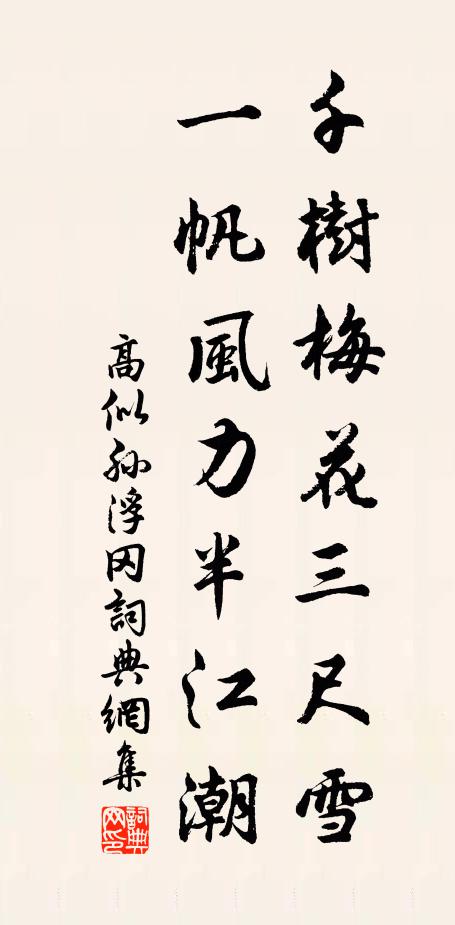 千樹梅花三尺雪
一帆風力半江潮
高似孙浮冈詞典網集
詞典网印